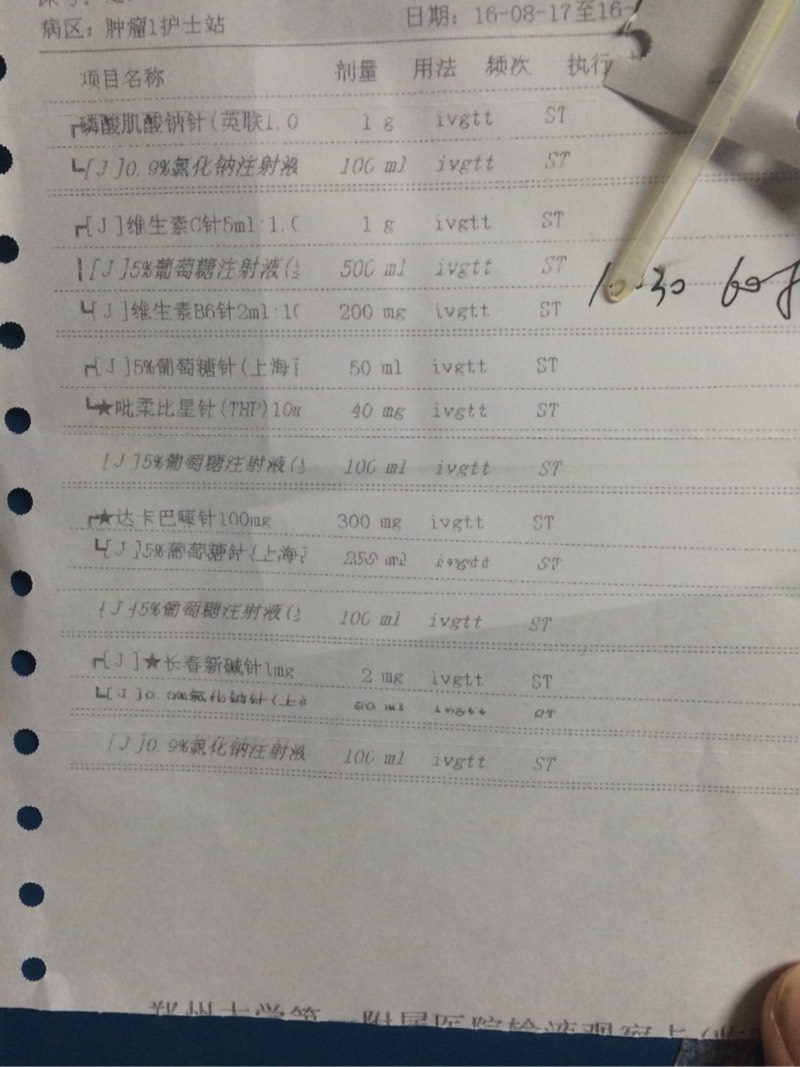 病区: 肿瘤1护士站 日期: 16-08-17至16-
项目名称 剂量 用法 频次 执行
┏磷酸肌酸钠针(英联1.0 1 g ivgtt ST
┗[J]0.9%氯化钠注射液 100 ml ivgtt ST
┏[J]维生素C针5ml:1.0 1 g ivgtt ST
┃[J]5%葡萄糖注射液( 500 ml ivgtt ST
┗[J]维生素B6针2ml:1( 200 mg ivgtt ST 10:30
┏[J]5%葡萄糖针(上海 50 ml ivgtt ST
┗★吡柔比星针(THP)10m 40 mg ivgtt ST
[J]5%葡萄糖注射液( 100 ml ivgtt ST
┏★达卡巴嗪针100mg 300 mg ivgtt ST
┗[J]5%葡萄糖针(上海 250 ml ivgtt ST
[J]5%葡萄糖注射液( 100 ml ivgtt ST
┏[J]★长春新碱针1mg 2 mg ivgtt ST
┗[J]0.9%氯化钠针(上 ml ivgtt ST
[J]0.9%氯化钠注射液 100 ml ivgtt ST
郑州大学第一附属医院输液观察卡(临